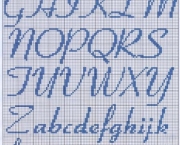 GHIKLM
NOPQRS
TUVWXY
Zabcdefghijk